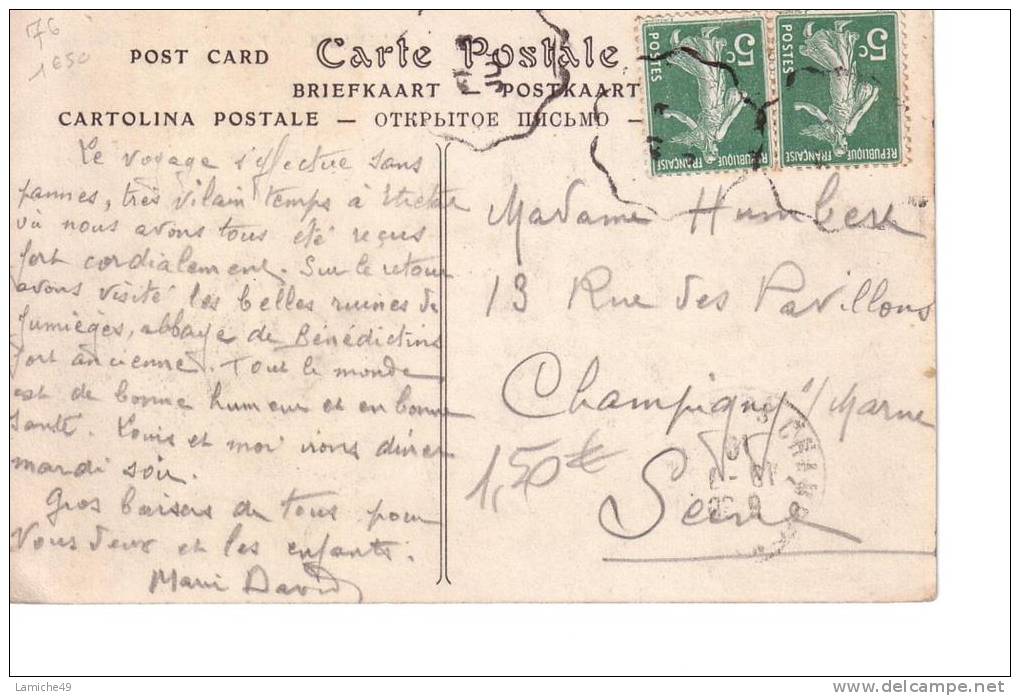 76
1€50
POST CARD
Carte Postale
BRIEFKAART — POSTKAART
CARTOLINA POSTALE — ОТКРЫТОЕ ПИСЬМО —
5c
POSTES
RÉPUBLIQUE FRANÇAISE
5c
POSTES
RÉPUBLIQUE FRANÇAISE
Le voyage s'effectue sans
pannes, très vilain temps à Etretat
où nous avons tous été reçus
fort cordialement. Sur le retour
avons visité les belles ruines de
Jumièges, abbaye de Bénédictins
fort ancienne. Tout le monde
est de bonne humeur et en bonne
santé. Louis et moi irons dîner
mardi soir.
Gros baisers de tous pour
vous deux et les enfants.
Marie David
Madame Humbert
13 Rue des Pavillons
Champigny s/Marne
Seine
1,50€
Lamiche49
www.delcampe.net